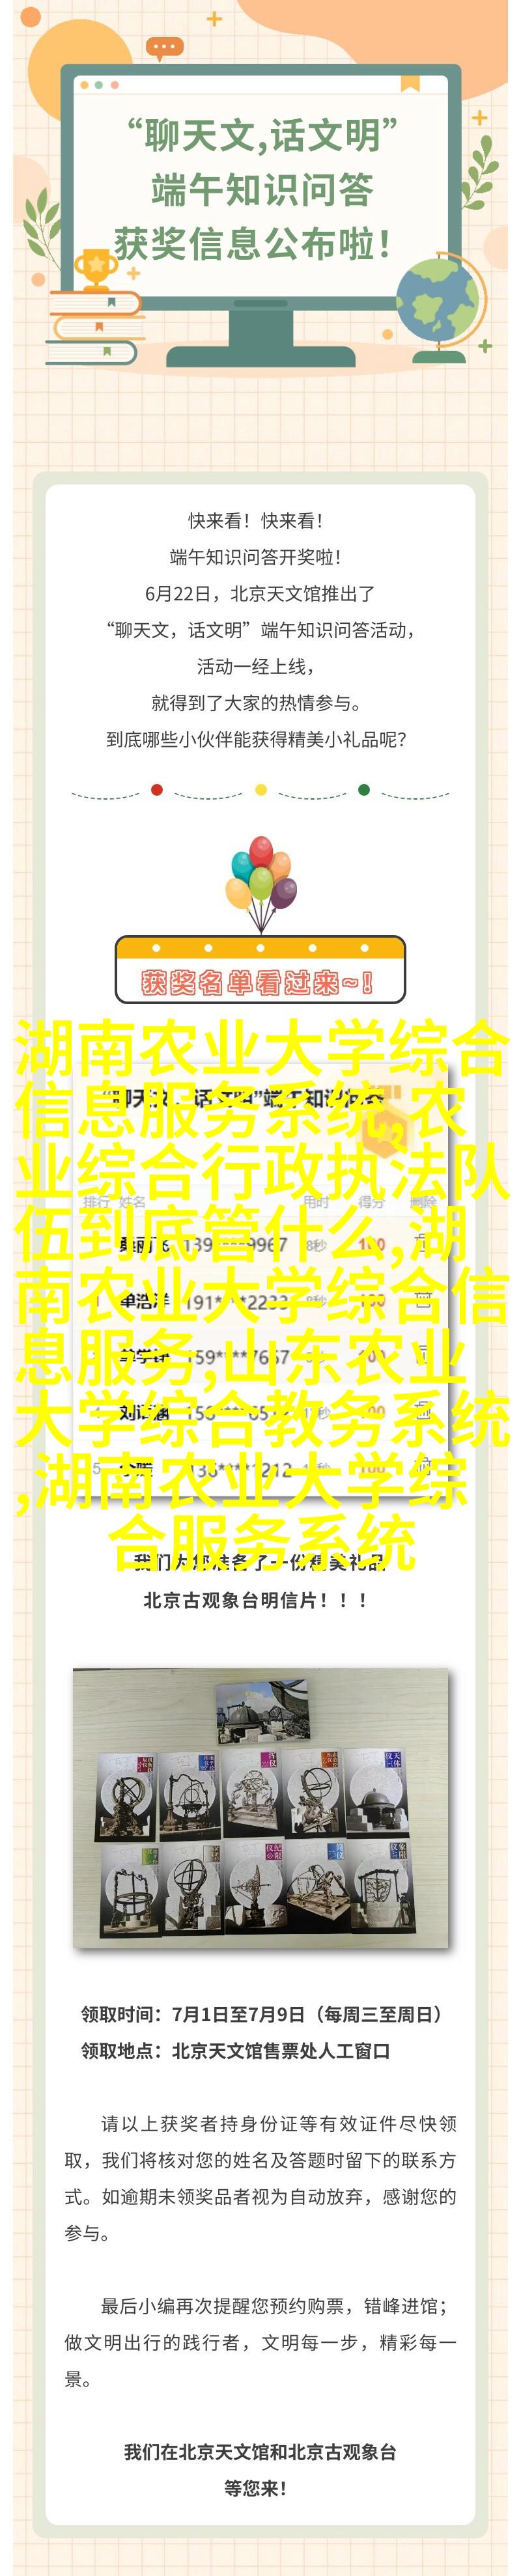 “聊天文,话文明”
端午知识问答
获奖信息公布啦！
快来看！快来看！
端午知识问答开奖啦！
6月22日，北京天文馆推出了
“聊天文，话文明”端午知识问答活动，
活动一经上线，
就得到了大家的热情参与。
到底哪些小伙伴能获得精美小礼品呢？
获奖名单看过来~！
湖南农业大学综合
信息服务系统,农
业综合行政执法队
伍到底管什么,湖
南农业大学综合信
息服务,山东农业
大学综合教务系统
,湖南农业大学综
合服务系统
排行 姓名 用时 得分 删除
我们为您准备了一份精美礼品
北京古观象台明信片！！！
领取时间：7月1日至7月9日（每周三至周日）
领取地点：北京天文馆售票处人工窗口
请以上获奖者持身份证等有效证件尽快领
取，我们将核对您的姓名及答题时留下的联系方
式。如逾期未领奖品者视为自动放弃，感谢您的
参与。
最后小编再次提醒您预约购票，错峰进馆；
做文明出行的践行者，文明每一步，精彩每一
景。
我们在北京天文馆和北京古观象台
等您来！